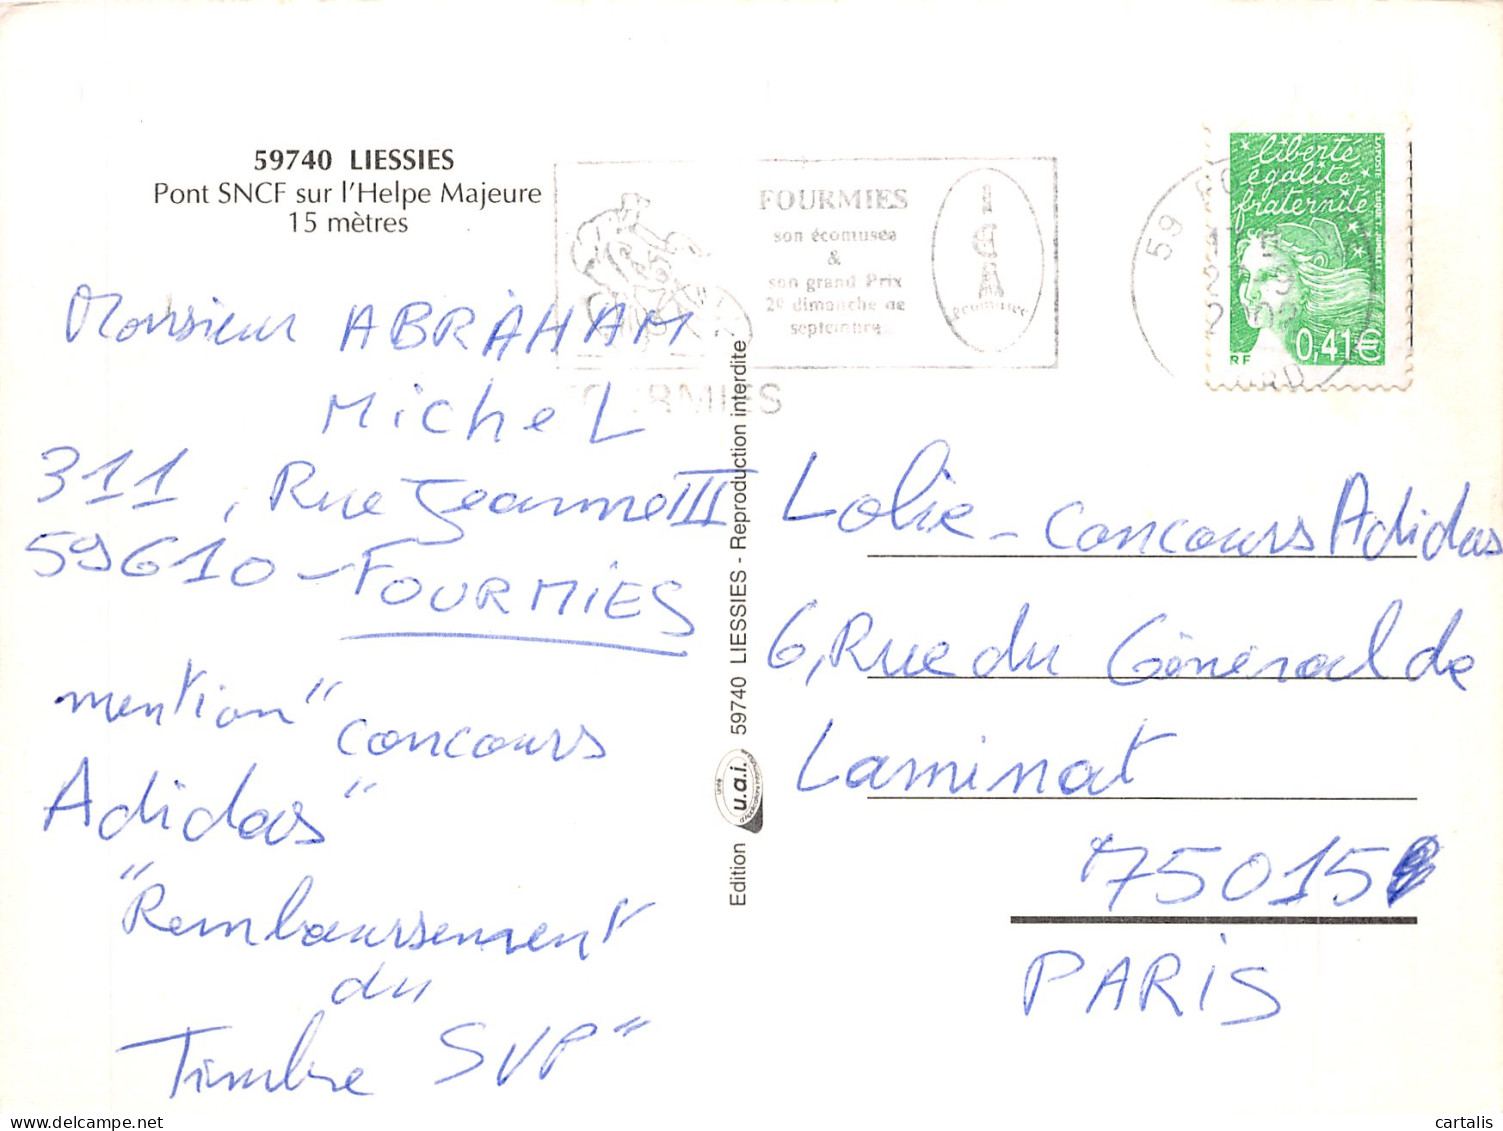 59740 LIESSIES
Pont SNCF sur l'Helpe Majeure
15 mètres
FOURMIES
son écomusée
&
son grand Prix
2e dimanche de
septembre
écomusée
FOURMIES
liberté
égalité
fraternité
LA POSTE
RF 0,41€
59
Monsieur ABRAHAM
Michel
311, Rue Jeanne III
59610 - FOURMIES
mention "concours
Adidas"
"Remboursement
du
Timbre SVP"
Edition u.a.i. 59740 LIESSIES - Reproduction interdite
Lolie - Concours Adidas
6, Rue du Général de
Laminat
75015
PARIS
cartalis